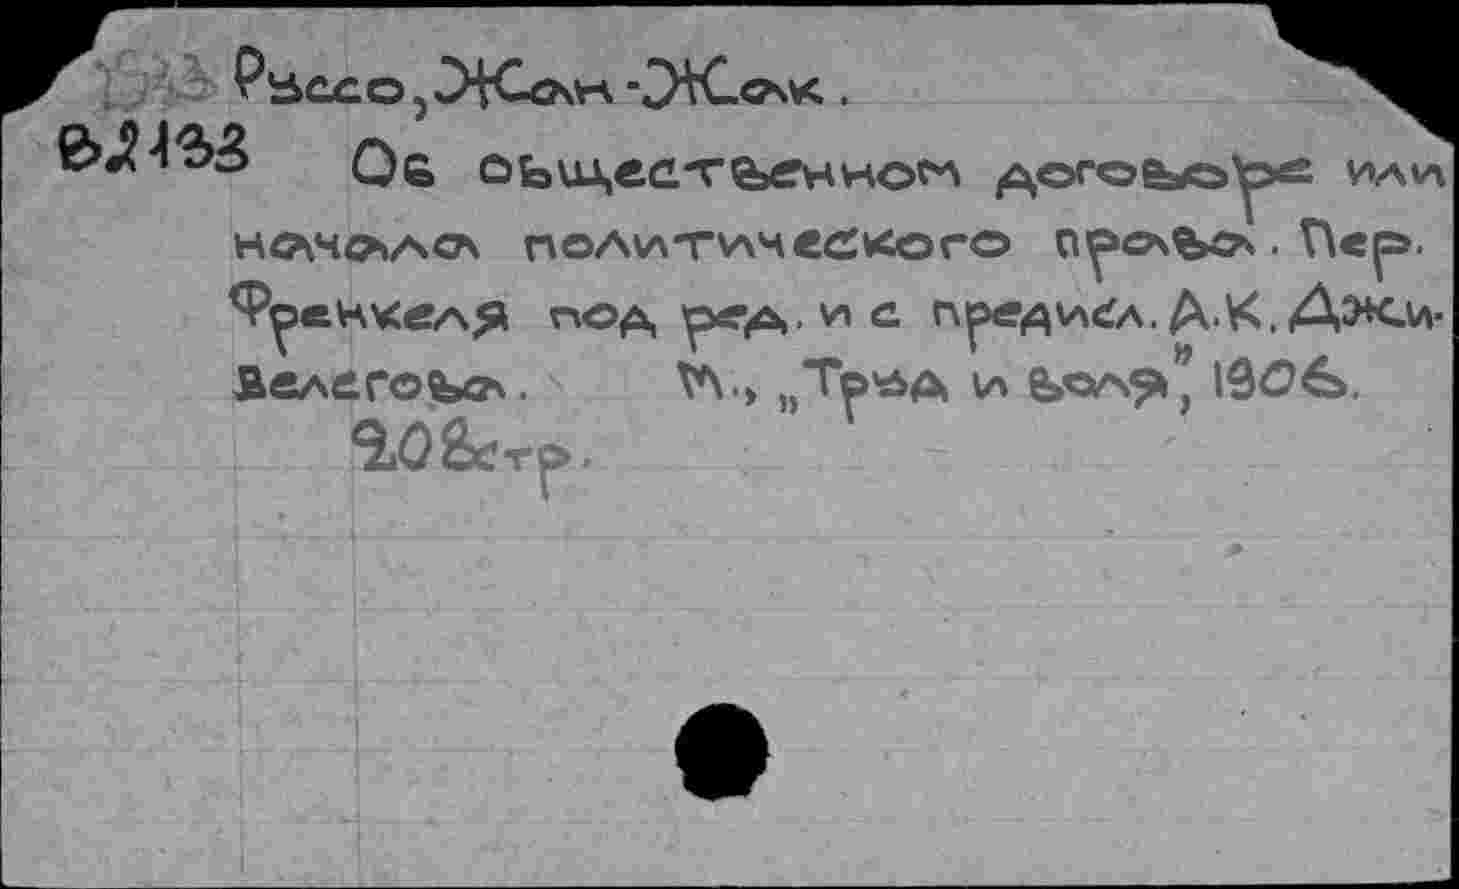 Руссо, Жан-Жак.
Об общественном договоре или
начала политического права. Пер.
Френкеля под ред. и с предисл. А.К. Дживелегова. М., „Труд и воля”, 1906.
208стр.